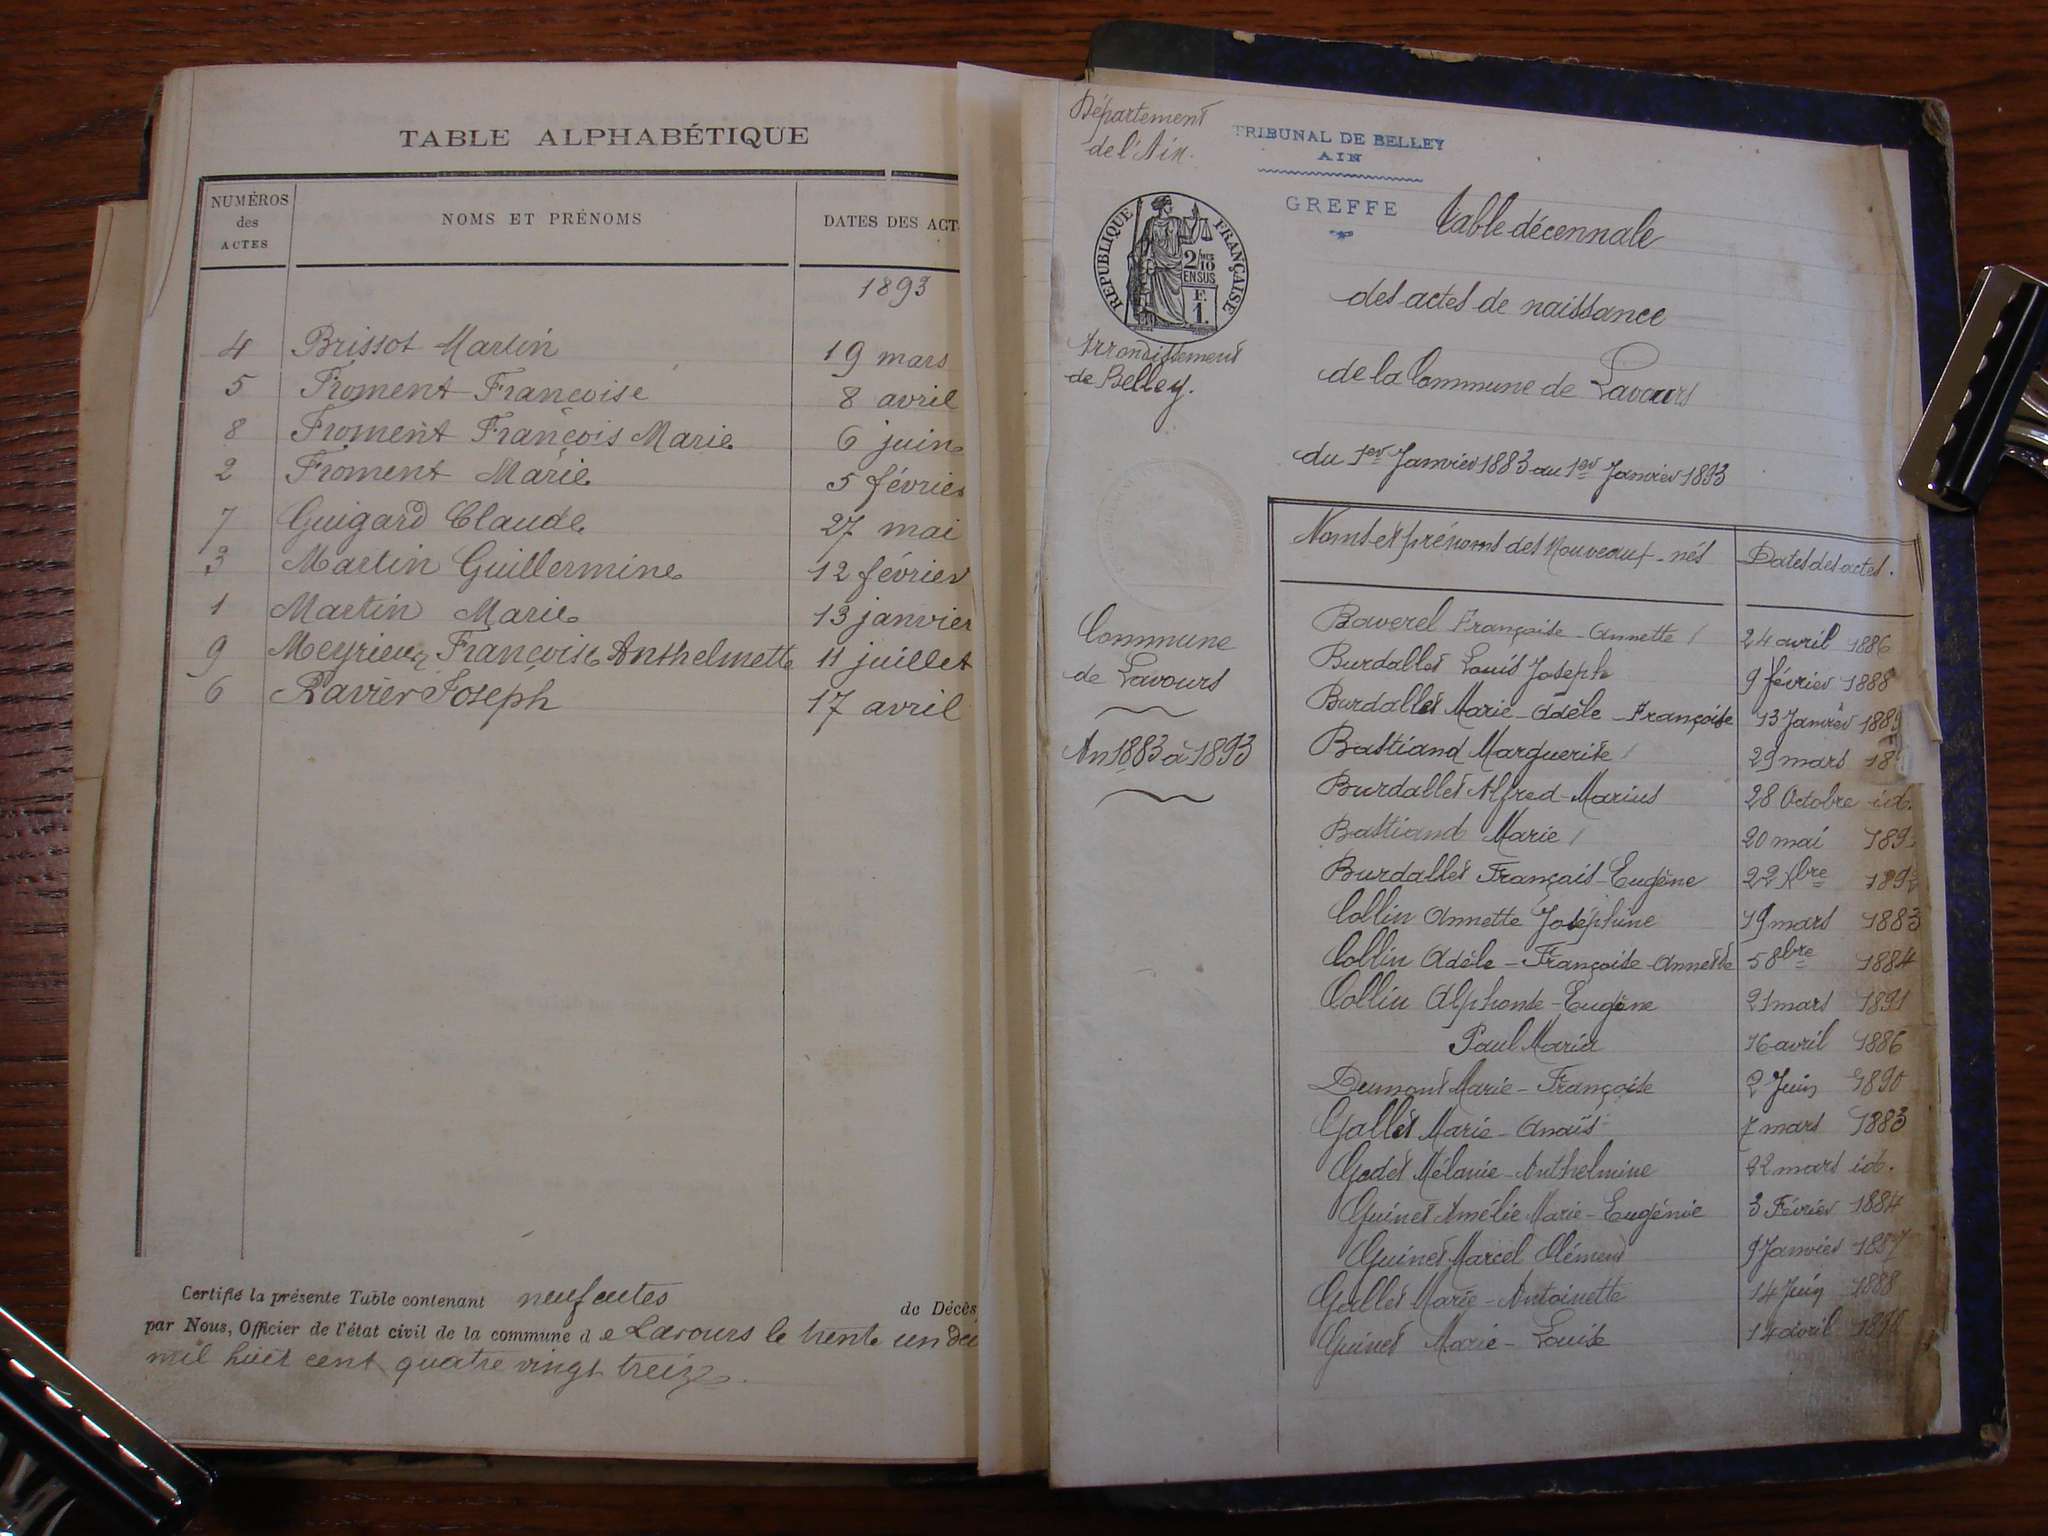 TABLE ALPHABÉTIQUE
NUMÉROS des ACTES NOMS ET PRÉNOMS DATES DES ACT
1893
4 Brissot Martin 19 mars
5 Froment Françoise 8 avril
8 Froment François Marie 6 juin
2 Froment Marie 5 février
7 Guigard Claude 27 mai
3 Martin Guillermine 12 février
1 Martin Marie 13 janvier
9 Meyrieux Françoise Anthelmette 11 juillet
6 Ravier Joseph 17 avril
Certifié la présente Table contenant neuf actes de Décès
par Nous, Officier de l'état civil de la commune de Lavours le trente un dec
mil huit cent quatre vingt treize.
Département
de l'Ain.
TRIBUNAL DE BELLEY
AIN
GREFFE
RÉPUBLIQUE FRANÇAISE
2/10
EN SUS
F.
1.
Arrondissement
de Belley.
Commune
de Lavours
An 1883 à 1893
Table décennale
des actes de naissance
de la Commune de Lavours
du 1er Janvier 1883 au 1er Janvier 1893
Noms et prénoms des Nouveaux-nés Dates des actes.
Bawerel Françoise-Annette 24 avril 1886
Burdallet Louis Joseph 9 février 1888
Burdallet Marie-Adèle-Françoise 13 Janvier 1889
Bastiand Marguerite 29 mars 18
Burdallet Alfred-Marius 28 Octobre id.
Bastiand Marie 20 mai 189
Burdallet Français-Eugène 22 Xbre 189
Collin Annette Joséphine 19 mars 1883
Collin Adèle-Françoise-Annette 5 8bre 1884
Collin Alphonse-Eugène 21 mars 1891
Paul Maria 16 avril 1886
Dumont Marie-Françoise 2 Juin 1890
Gallet Marie-Anaïs 7 mars 1883
Godet Mélanie-Anthelmine 22 mars id.
Guinet Amélie Marie-Eugénie 3 Février 1884
Guinet Marcel Clément 9 Janvier 1887
Gallet Marie-Antoinette 14 Juin 1888
Guinet Marie-Louise 14 avril